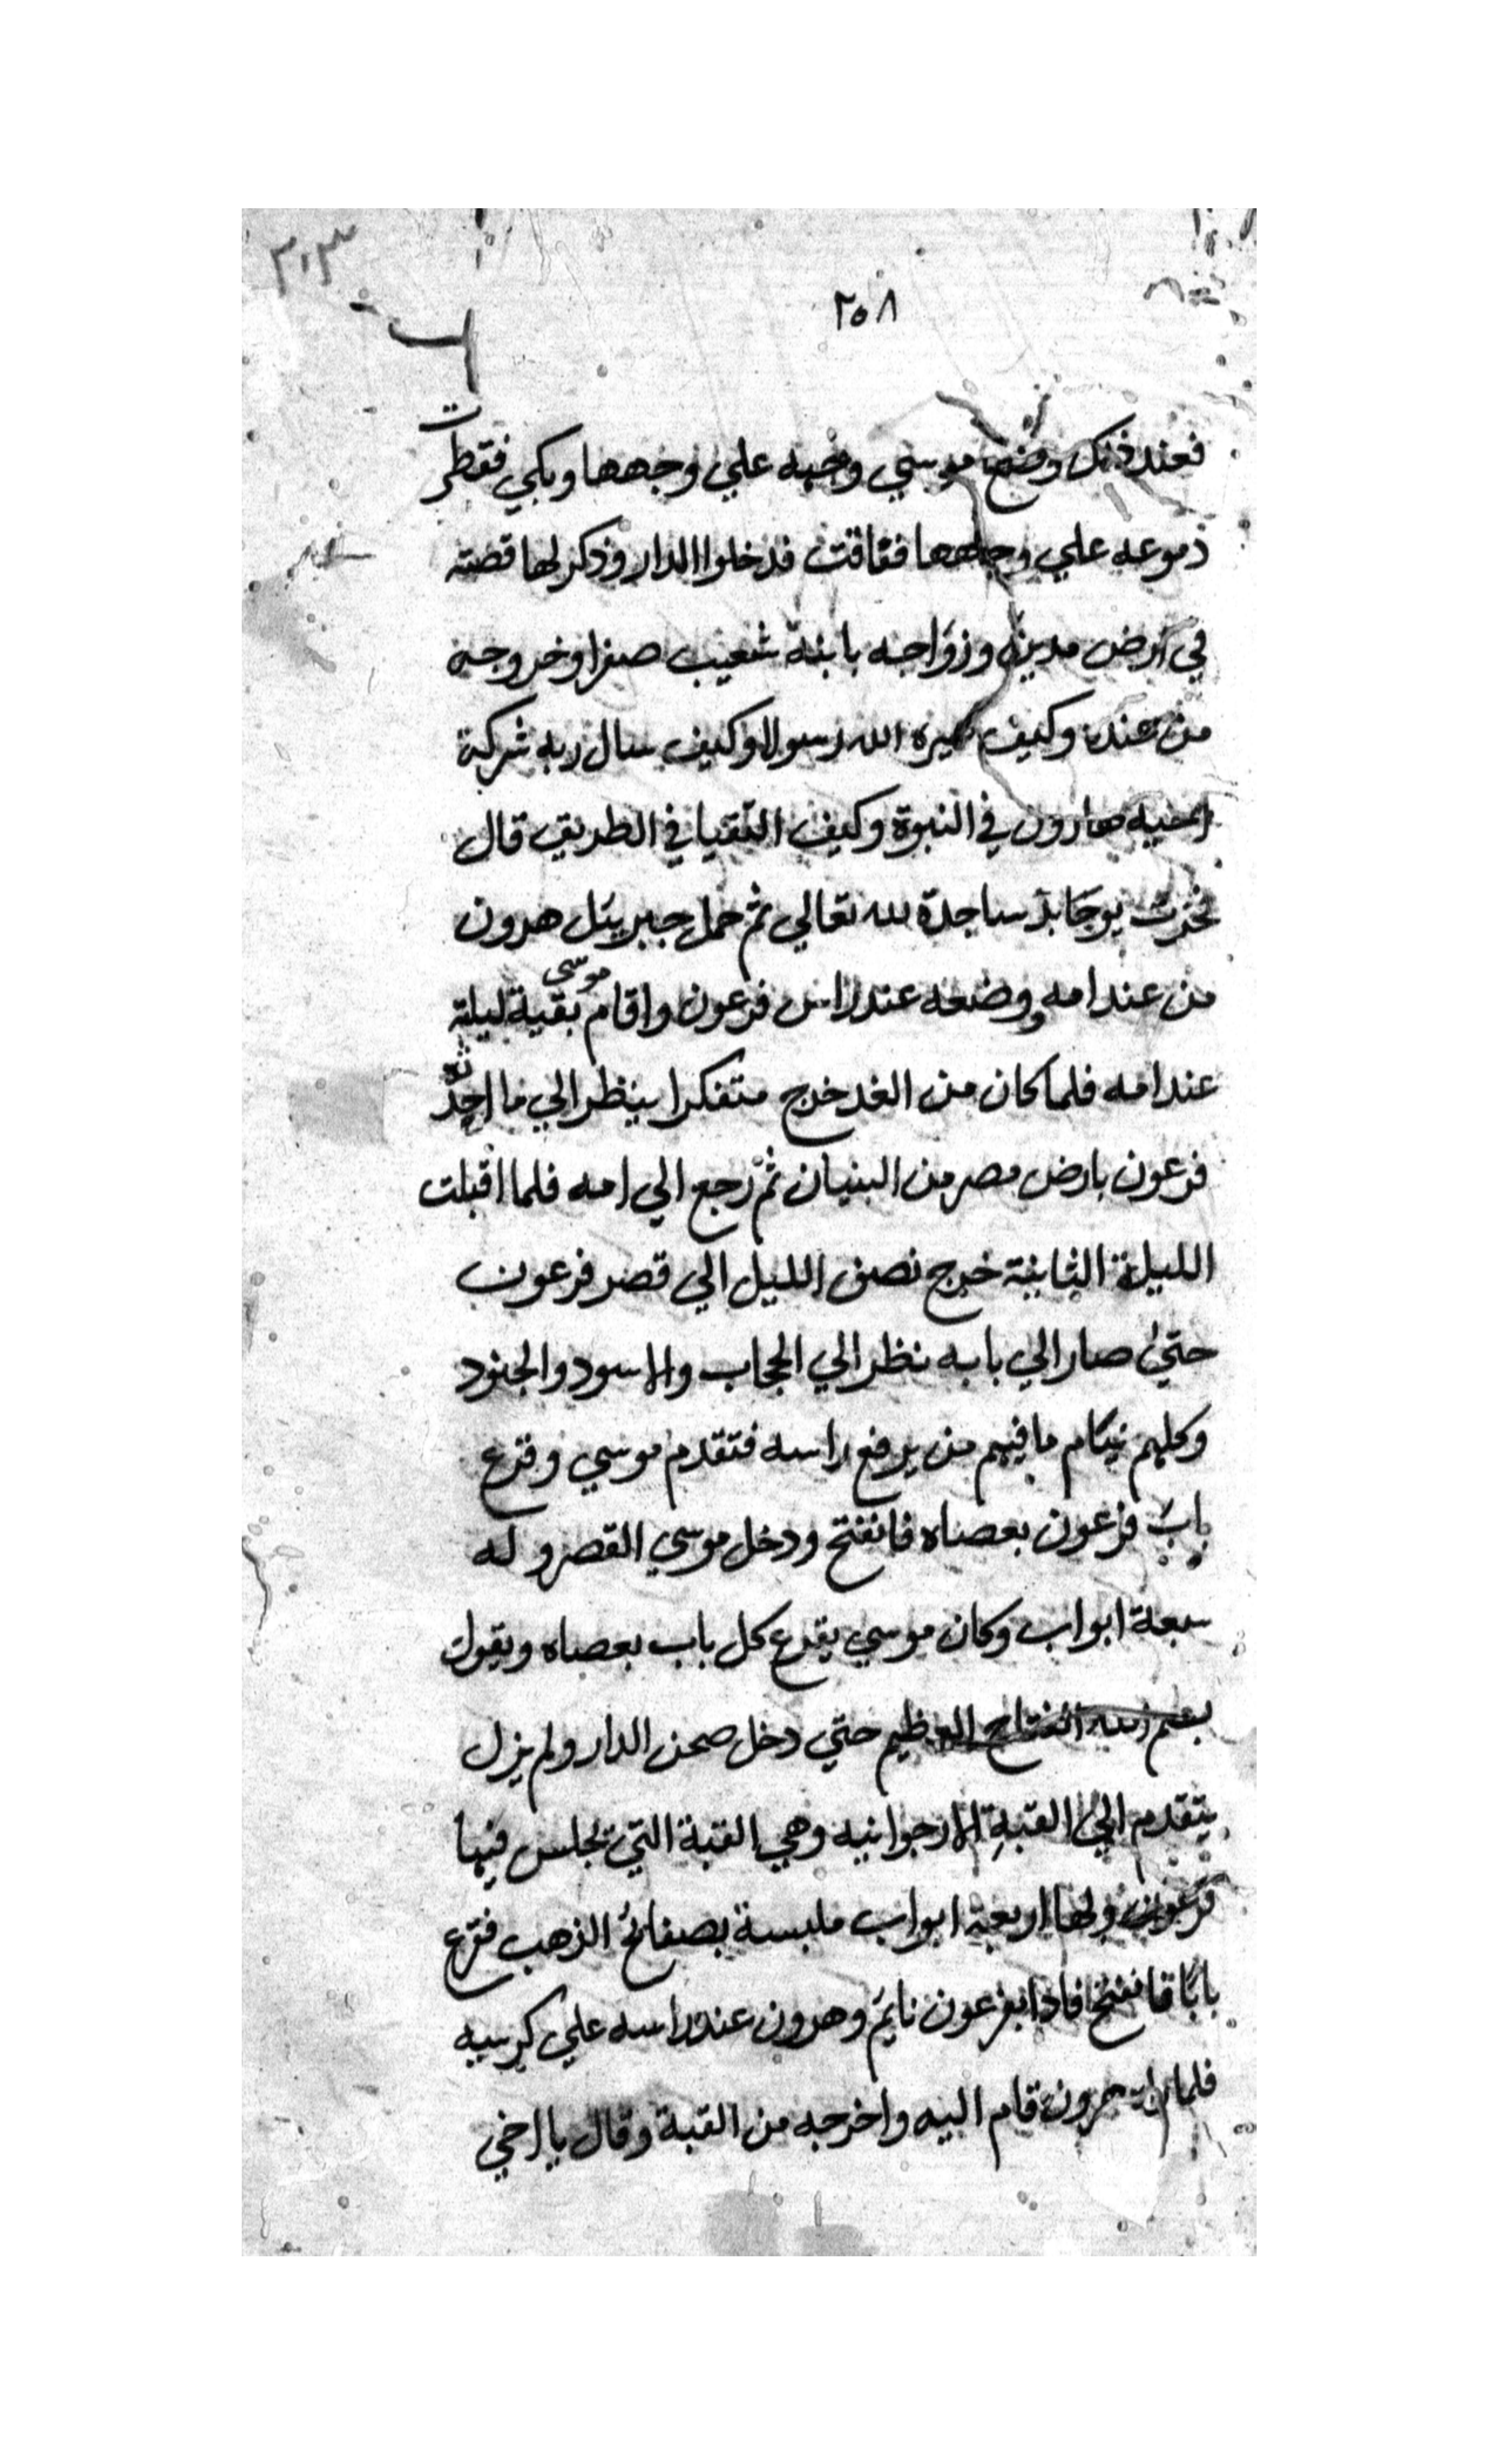 ٣١٣
٢٥٨
فعند ذلك وضع موسي وجهه علي وجهها وبكي فقطرت
دموعه علي وجهها فقاقت فدخلوا الدار وذكر لها قصته
في ارض مدين وزواجه بابنة شعيب صفرا وخروجه
من عنده وكيف صيره الله رسولا وكيف سال ربه شركة
اخيه هارون في النبوة وكيف التقيا في الطريق قال
فخرت يوخابد ساجدة لله تعالي ثم حمل جبريئل هرون
من عند امه ووضعه عند راس فرعون واقام موسى بقية ليلته
عند امه فلما كان من الغد خرج متفكرا ينظر الي ما احدثه
فرعون بارض مصر من البنيان ثم رجع الي امه فلما اقبلت
الليلة الثانية خرج نصف الليل الي قصر فرعون
حتي صار الي بابه نظر الي الحجاب والاسود والجنود
وكلهم نيام ما فيهم من يرفع راسه فتقدم موسي وقرع
باب فرعون بعصاه فانفتح ودخل موسي القصر وله
سبعة ابواب وكان موسي يقرع كل باب بعصاه ويقول
بسم الله الفتاح العظيم حتي دخل صحن الدار ولم يزل
يتقدم الي القبة الارجوانيه وهي القبة التي تجلس فيها
فرعون ولها اربعة ابواب ملبسة بصفائح الذهب فقرع
بابا فانفتح فاذا بفرعون نايم وهرون عند راسه علي كرسيه
فلما راه هرون قام اليه واخرجه من القبة وقال يا اخي